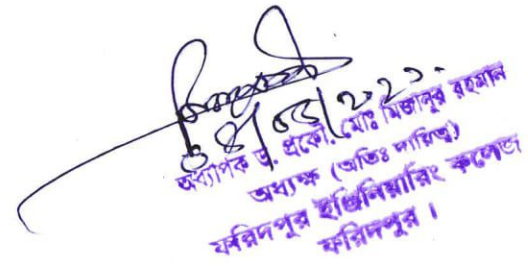 অধ্যাপক ড. প্রকৌ. মোঃ মিজানুর রহমান
অধ্যক্ষ (অতিঃ দায়িত্ব)
ফরিদপুর ইঞ্জিনিয়ারিং কলেজ
ফরিদপুর ।